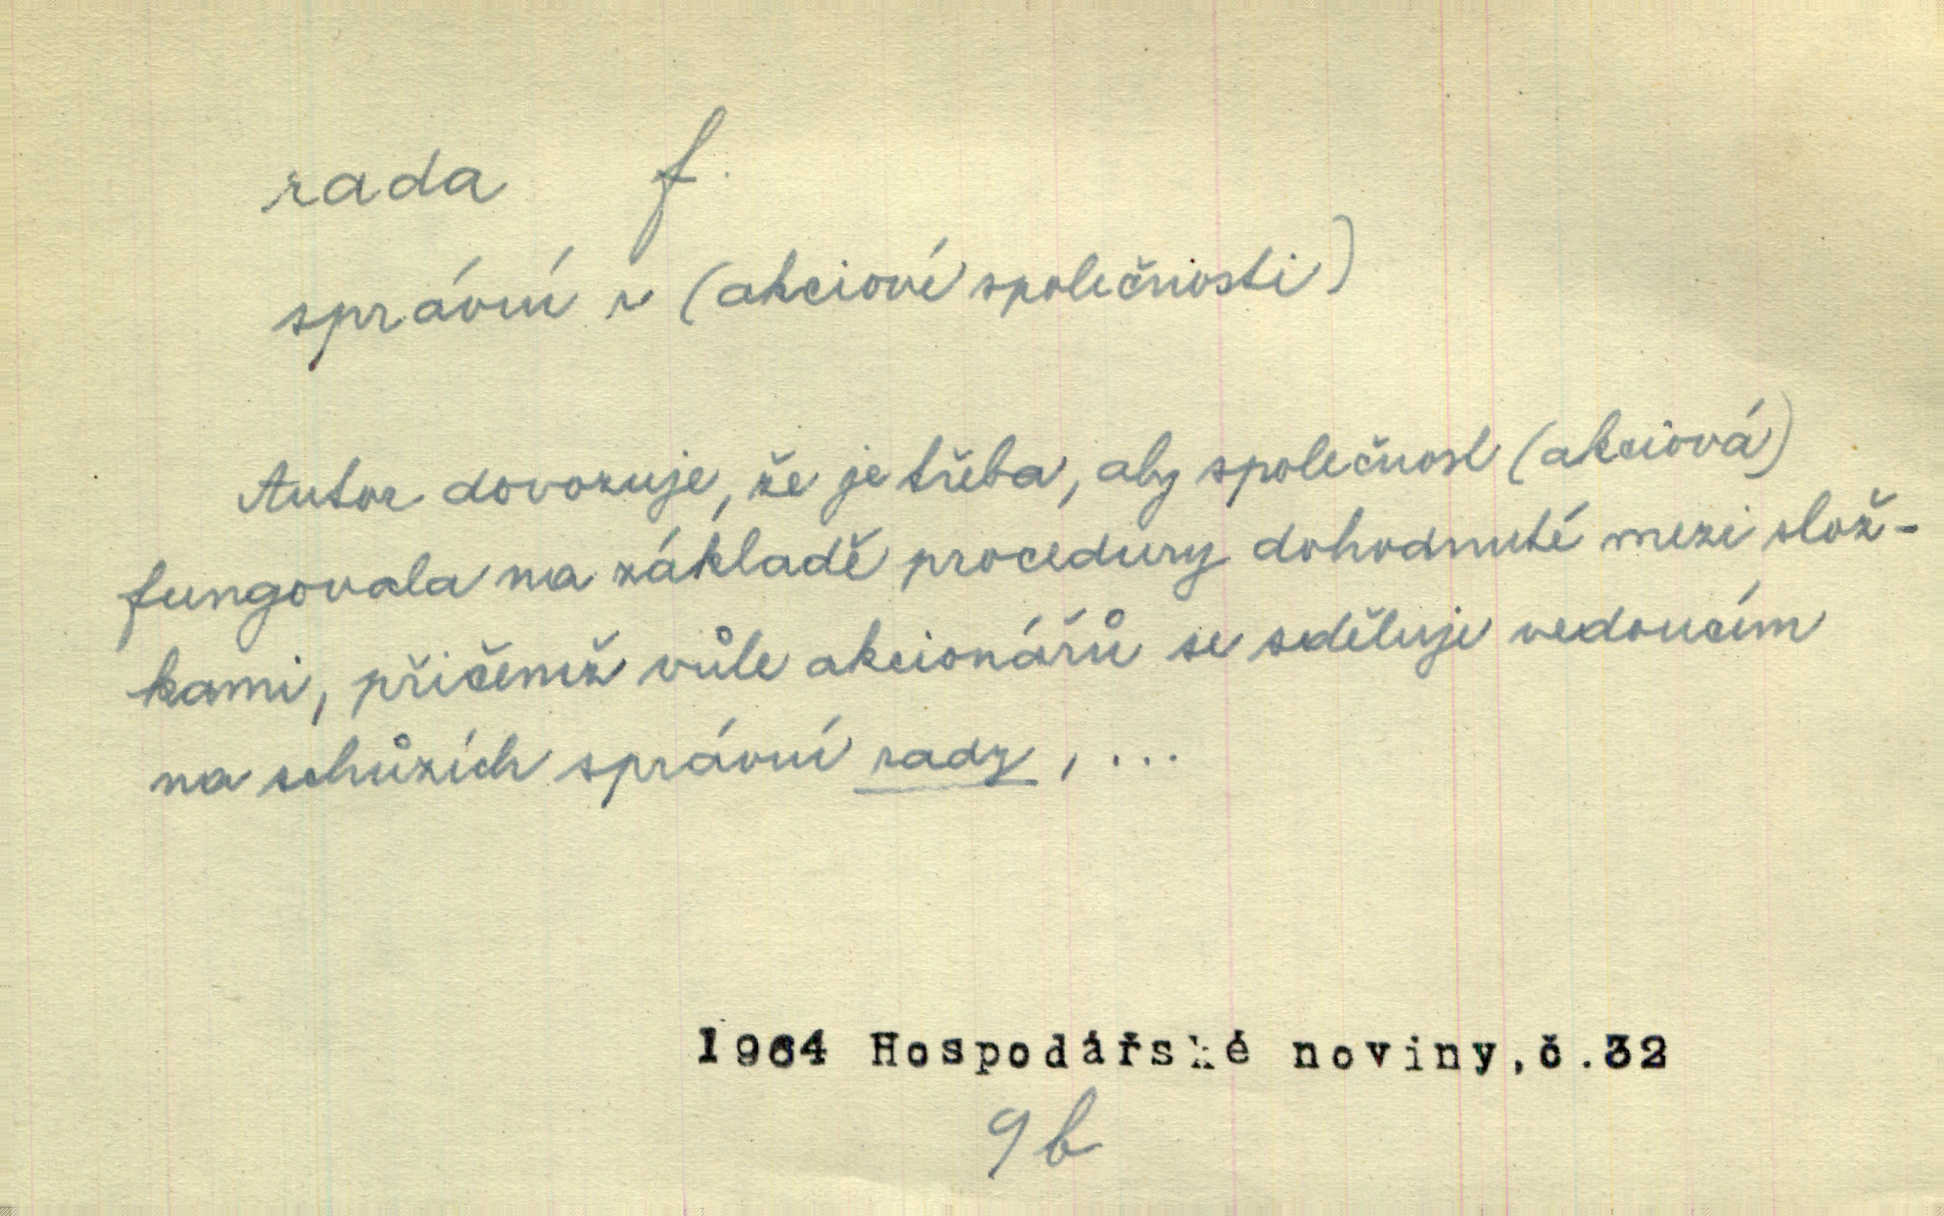 rada f.
správní r (akciové společnosti)
Autor dovozuje, že je třeba, aby společnost (akciová)
fungovala na základě procedury dohodnuté mezi slož-
kami, přičemž vůle akcionářů se sděluje vedoucím
na schůzích správní rady, ...
1964 Hospodářské noviny,č.32
9b